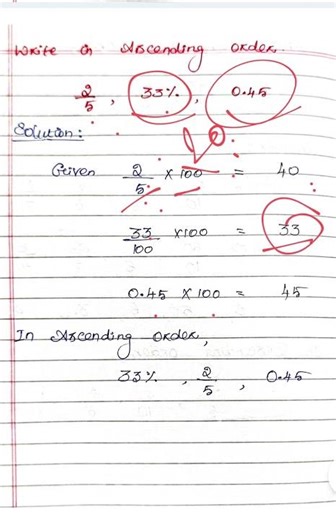 Write in Ascending order.
2/5, 33%, 0.45
Solution:
Given 2/5 × 100 = 40
33/100 × 100 = 33
0.45 × 100 = 45
In Ascending order,
33%, 2/5, 0.45